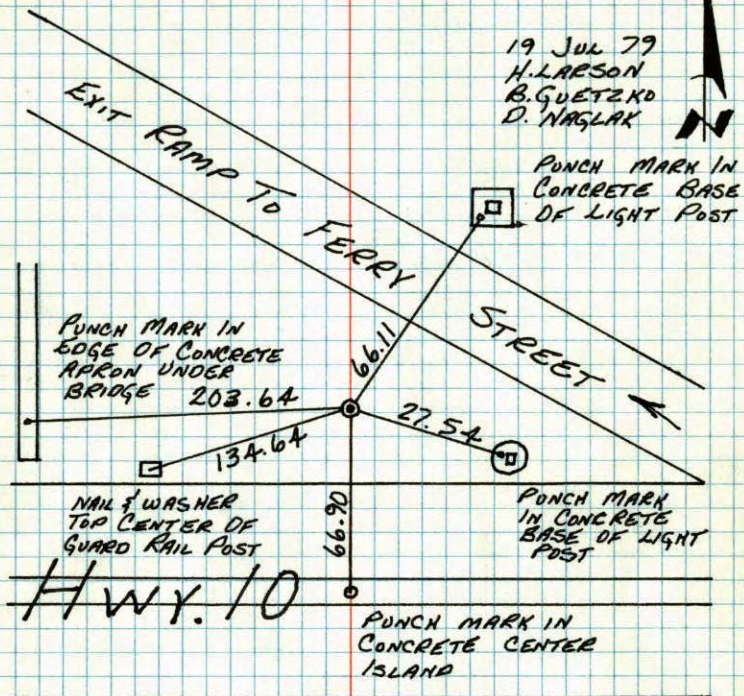 19 JUL 79
H. LARSON
B. GUETZKO
D. NAGLAK
N
EXIT RAMP TO FERRY STREET
PUNCH MARK IN
CONCRETE BASE
OF LIGHT POST
66.11
PUNCH MARK IN
EDGE OF CONCRETE
APRON UNDER
BRIDGE
203.64
134.64
27.54
NAIL & WASHER
TOP CENTER OF
GUARD RAIL POST
66.90
PUNCH MARK
IN CONCRETE
BASE OF LIGHT
POST
HWY. 10
PUNCH MARK IN
CONCRETE CENTER
ISLAND